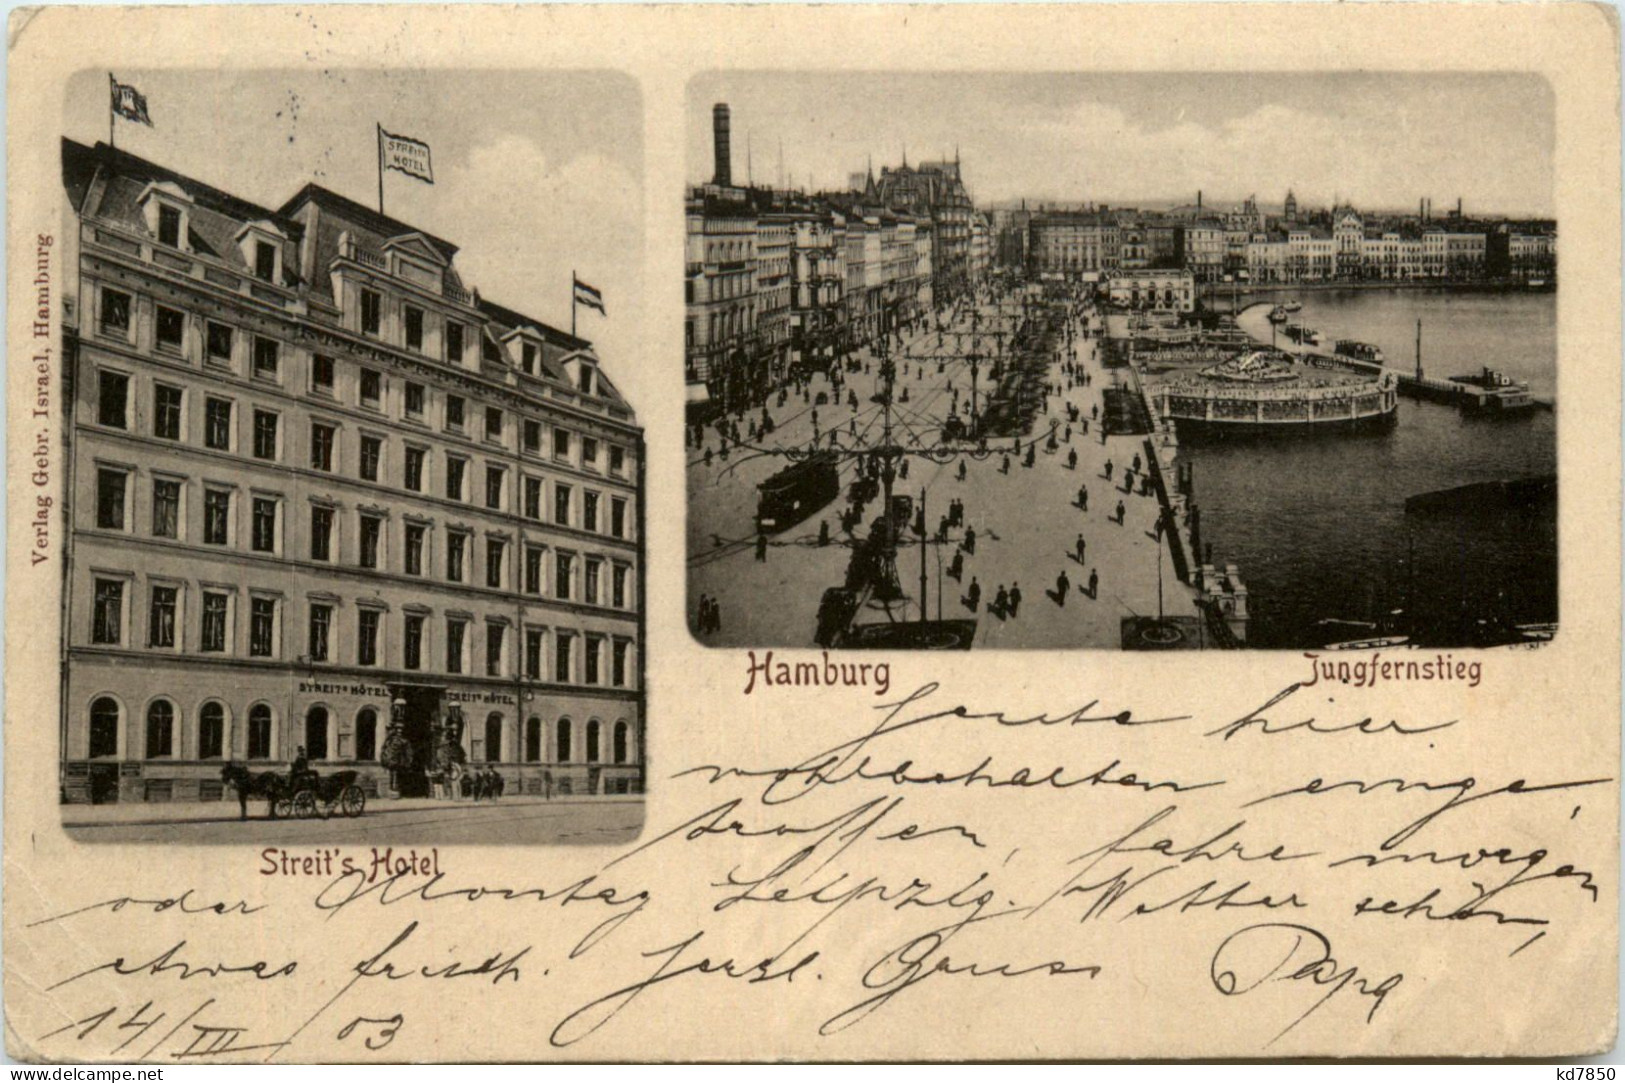 Verlag Gebr. Israel, Hamburg
STREITS
HOTEL
STREITS HÔTEL
STREITS HÔTEL
Streit's Hotel
Hamburg
Jungfernstieg
Heute hier
wohlbehalten einge
troffen, fahre morgen
oder Montag Leipzig. Wetter schön,
etwas frisch. Herzl. Gruss Papa
14/III 03
kd7850